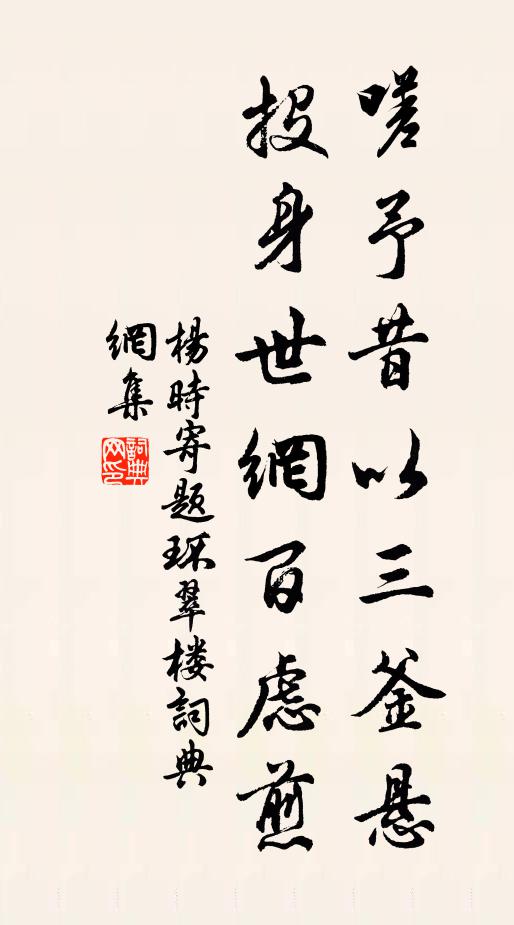 嗟予昔以三釜悬
投身世網百慮煎
楊時寄題环翠楼詞典
網集
詞典網印